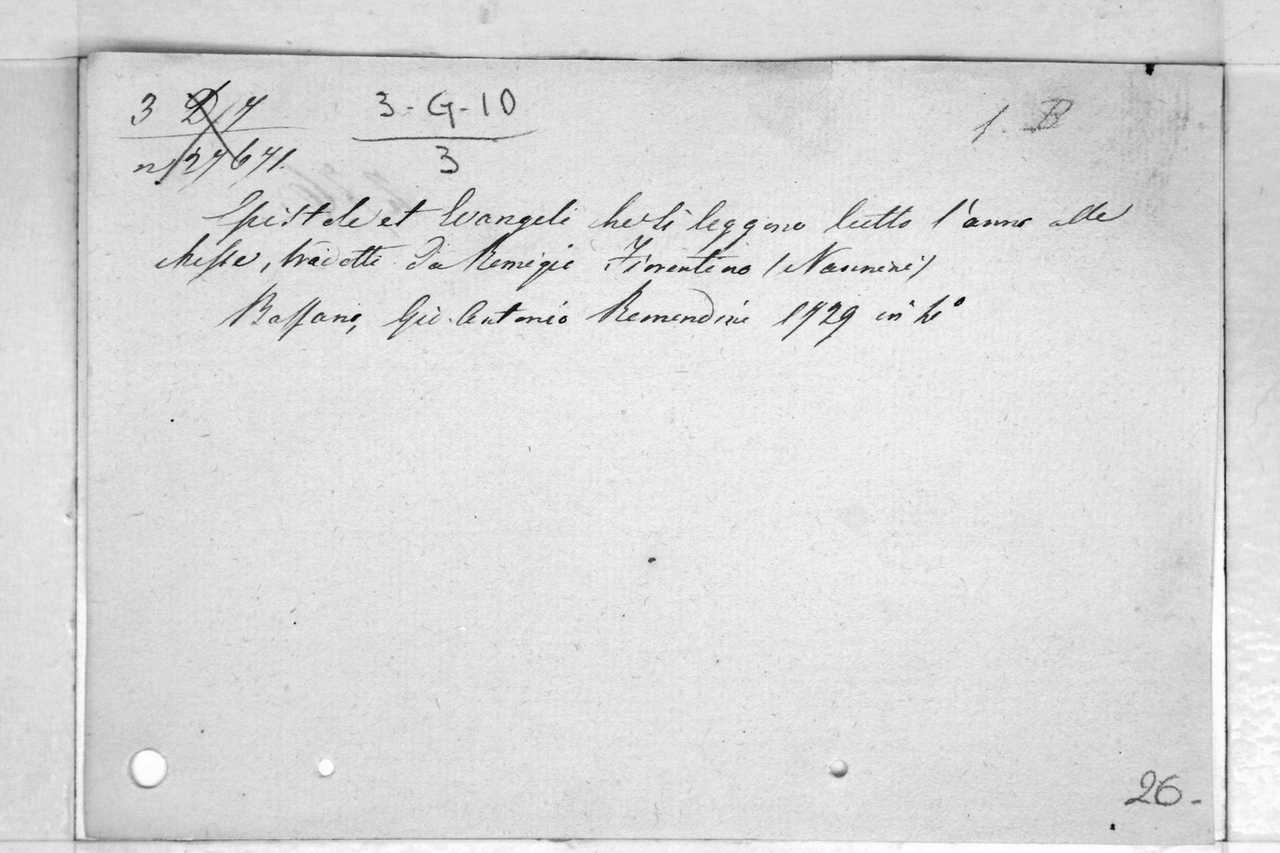 3 D 7 3-G-10
n 27671. 3
1. B
Epistole et Evangeli che si leggono tutto l'anno alle
Messe, tradotte da Remigio Fiorentino (Nannini)
Bassano, Gio. Antonio Remondini 1729 in 4°
26.